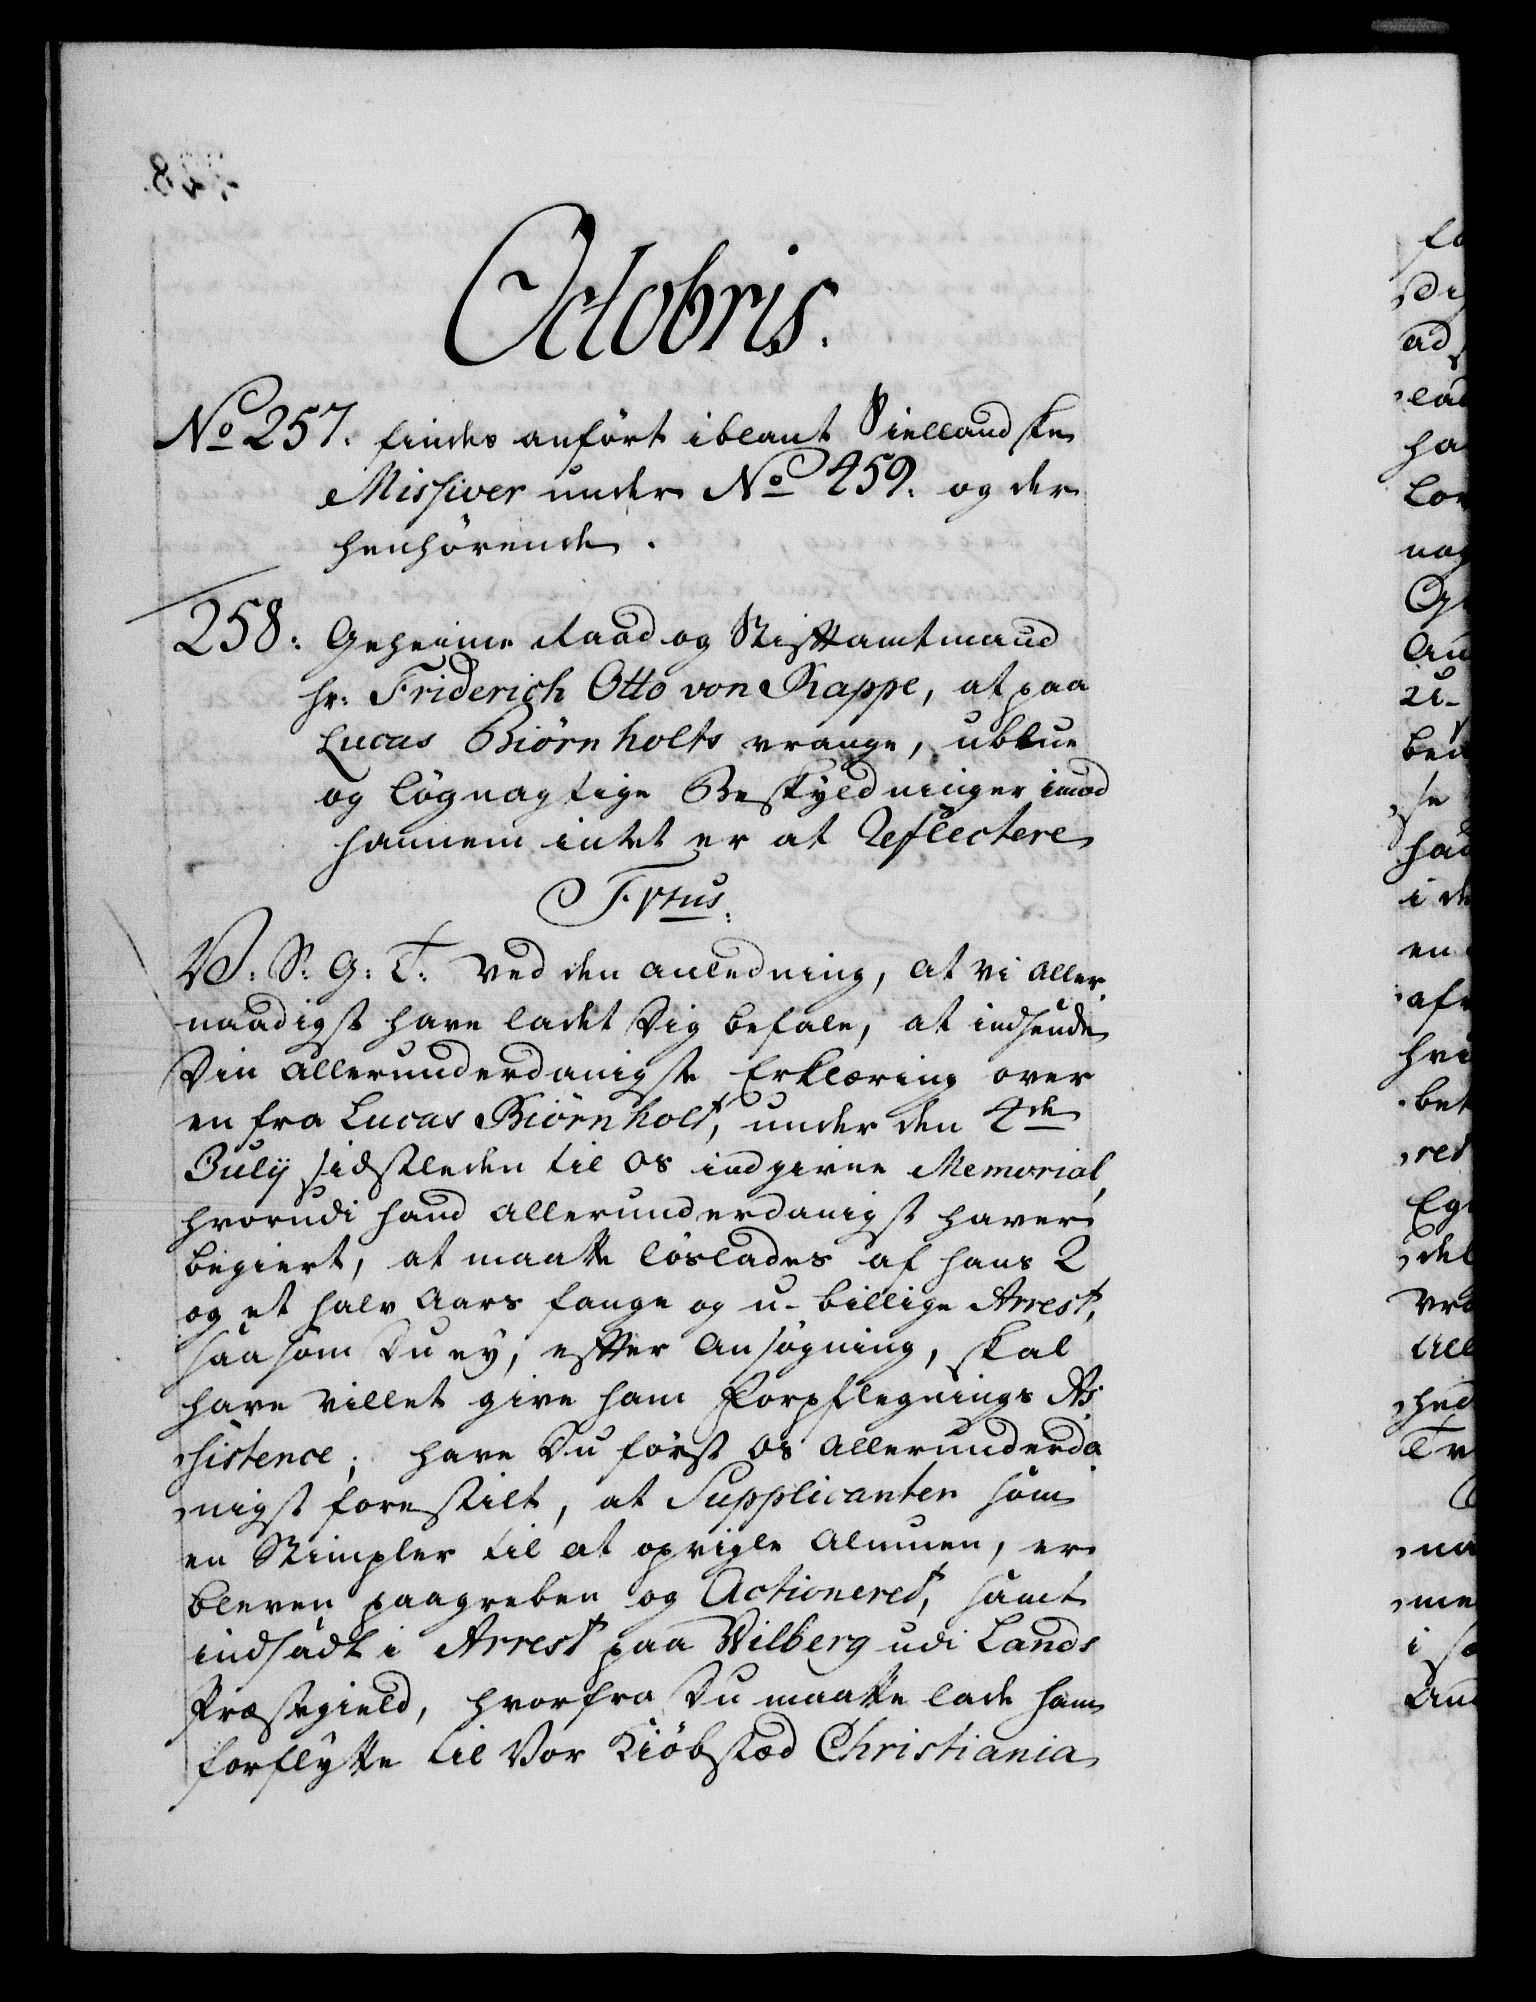 Octobris.
No 257. findes anført iblant Siellandske
Missiver under No 459. og der
henhørende.
258. Geheime Raad og Stiftamtmand
Hr: Friderich Otto von Rappe, at paa
Lucas Biörnholts vrange, ublue
og løgnagtige Beskyldninger imod
hannem intet er at Reflectere
F. 5tus.
V: S: G: T: Ved den anledning, at Vi Aller
naadigst have ladet Dig befale, at indsende
Din allerunderdanigste Erklæring over
en fra Lucas Biörnholt, under den 4de
Julij sidstleden til os indgivne Memorial,
hvorudi hand allerunderdanigst haver
begiert, at maatte løslades af hans 2
og et halv Aars fange og u-billige Arrest,
saasom Du ey, efter Ansøgning, skal
have villet give ham Forpflegnings As
sistence; have Du først os allerunderda
nigst forestilt, at Supplicanten som
en Stimpler til at oprigle Almuen, er
bleven paagreben og Actioneret, samt
indsadt i Arrest paa Vilberg udi Lands
Præstegield, hvorfra Du maatte lade ham
forflytte til Vor Kiöbstæd Christiania